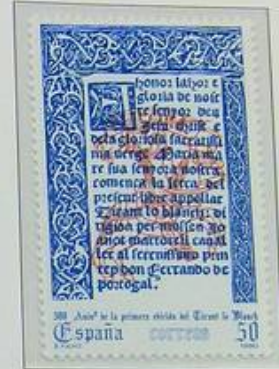 A honor lahor e
gloria de nost
re senyor deu
Jesu christ e
dela gloriosa sacratissi
ma verge Maria ma
re sua senyora nostra
comença la letra del
present libre appellat
Tirant lo blanch: di
rigida per mossen Jo
anot martorell caval
ler al serenissimo prin
cep don Ferrando de
portogal.
500 Anivº de la primera edición del Tirant lo Blanch
España correos 50